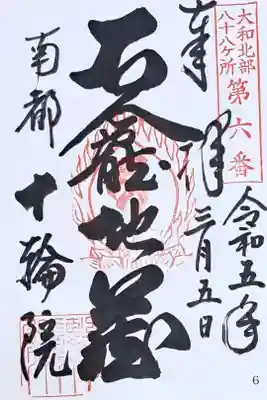 大和北部
八十八ヶ所
第六番
奉拝
令和五年
三月五日
石龕地蔵
南都
十輪院
6